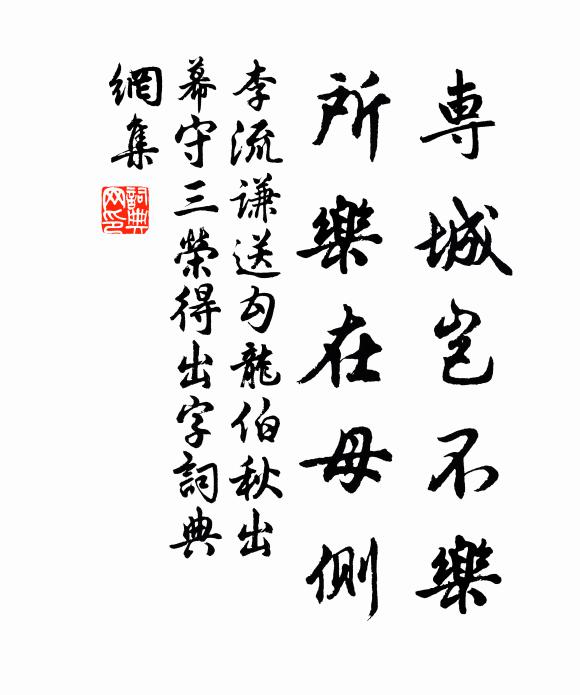 専城岂不樂
所樂在母側
李流谦送勾龍伯秋出
幕守三榮得出字詞典
網集
詞典网印